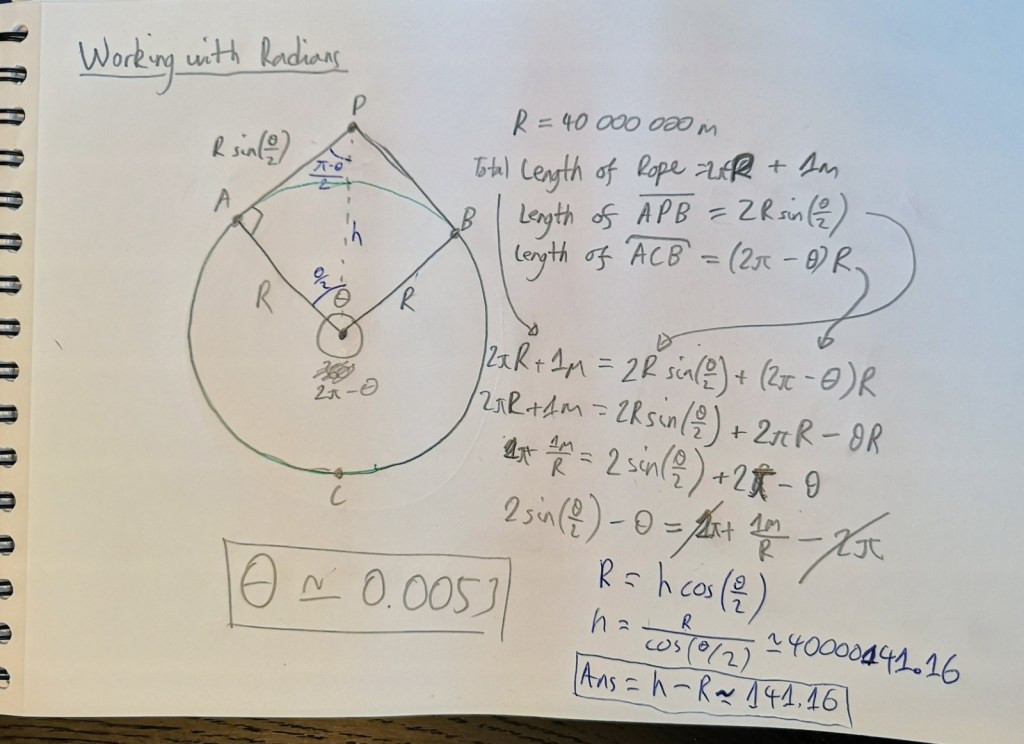 Working with Radians
P
R sin(θ/2)
(π-θ)/2
A
B
h
R
θ/2
θ
R
2π-θ
C
R = 40 000 000 m
Total Length of Rope = 2πR + 1m
Length of APB = 2R sin(θ/2)
Length of ACB = (2π - θ)R
2πR + 1m = 2R sin(θ/2) + (2π - θ)R
2πR + 1m = 2R sin(θ/2) + 2πR - θR
2π + 1m/R = 2 sin(θ/2) + 2π - θ
2 sin(θ/2) - θ = 2π + 1m/R - 2π
θ ≃ 0.0053
R = h cos(θ/2)
h = R/cos(θ/2) ≃ 40000141.16
Ans = h - R ≈ 141.16